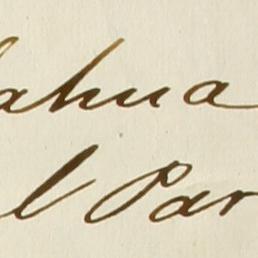 ahua
l Par